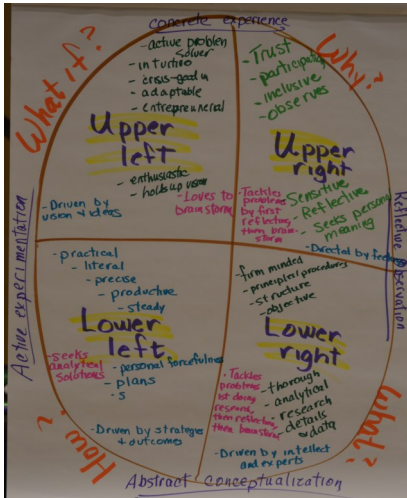 concrete experience
What if?
- active problem
solver
- intuitive
- crisis-good in
- adaptable
- entrepreneral
Upper
left
- enthusiastic
- holds up vision
- Loves to
brainstorm
- Driven by
vision & ideas
Why?
- Trust
- participating
- inclusive
- observes
Upper
right
- Tackles
problems
by first
reflecting,
then brain-
storm
- Sensitive
- Reflective
- Seeks personal
meaning
- Directed by feelings
Active experimentation
Reflective observation
- practical
- literal
- precise
- productive
- steady
Lower
left
- seeks
analytical
solutions
- personal forcefulness
- plans
- s
- Driven by strategies
+ outcomes
How?
- firm minded
- principles/procedures
- structure
- objective
Lower
right
- Tackles
problems
1st doing
research,
then reflecting,
then brainstorm
- thorough
- analytical
- research
- details
& data
- Driven by intellect
and experts
What?
Abstract conceptualization